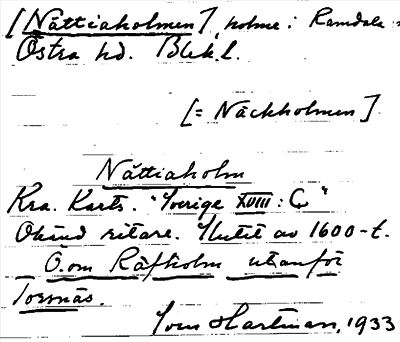 [Nättiaholmen], holme i Ramdala s:n
Östra hd. Blek.l.
[= Näckholmen]
Nättiaholm
Kra. Kartv. "Sverige XVIII: C"
Okänd ritare. Slutet av 1600-t.
O. om Räfholm utanför
Torsnäs.
Hartman, 1933